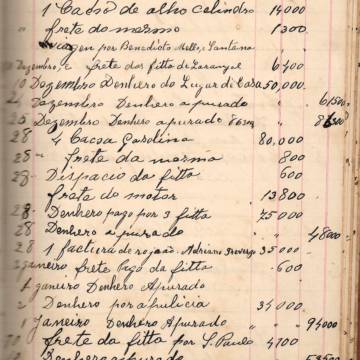 1 Cacho de alho Celindro 14000
" frete do mesmo 1300
Viagem por Benedicto Mello, Santana
Dezembro, 2 frete dos fitta de Laranjal 6400
10 Dezembro Denhero do Lugar di Casa 50,000
Dezembro Denhero apurado " 61500
26 Dezembro Denhero apurado
28 4 Cacsa Gasolina 80,000
28 " frete da mesma 800
28 - Despacio da fitta 600
frete do motor 13800
28 - Denhero pago por 3 fitta 75000
28 Denhero apurado " " 48000
28 1 factura de Adriano 35000
Janeiro frete pago da fitta 600
Janeiro Denhero Apurado
2 Denhero por a pulicia 34000
1 Janeiro Denhero Apurado " " 94000
frete da fitta por S. Paulo 4100
Denhero apurado